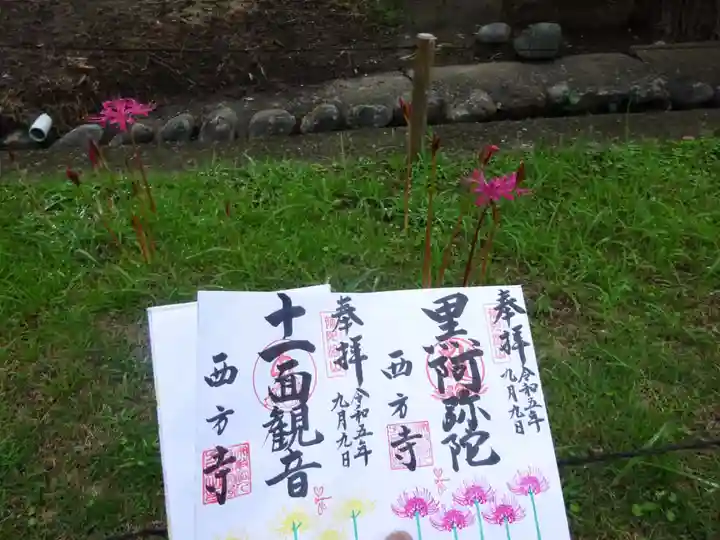 奉拝
令和五年
九月九日
黒阿弥陀
西方寺
奉拝
令和五年
九月九日
十一面観音
西方寺